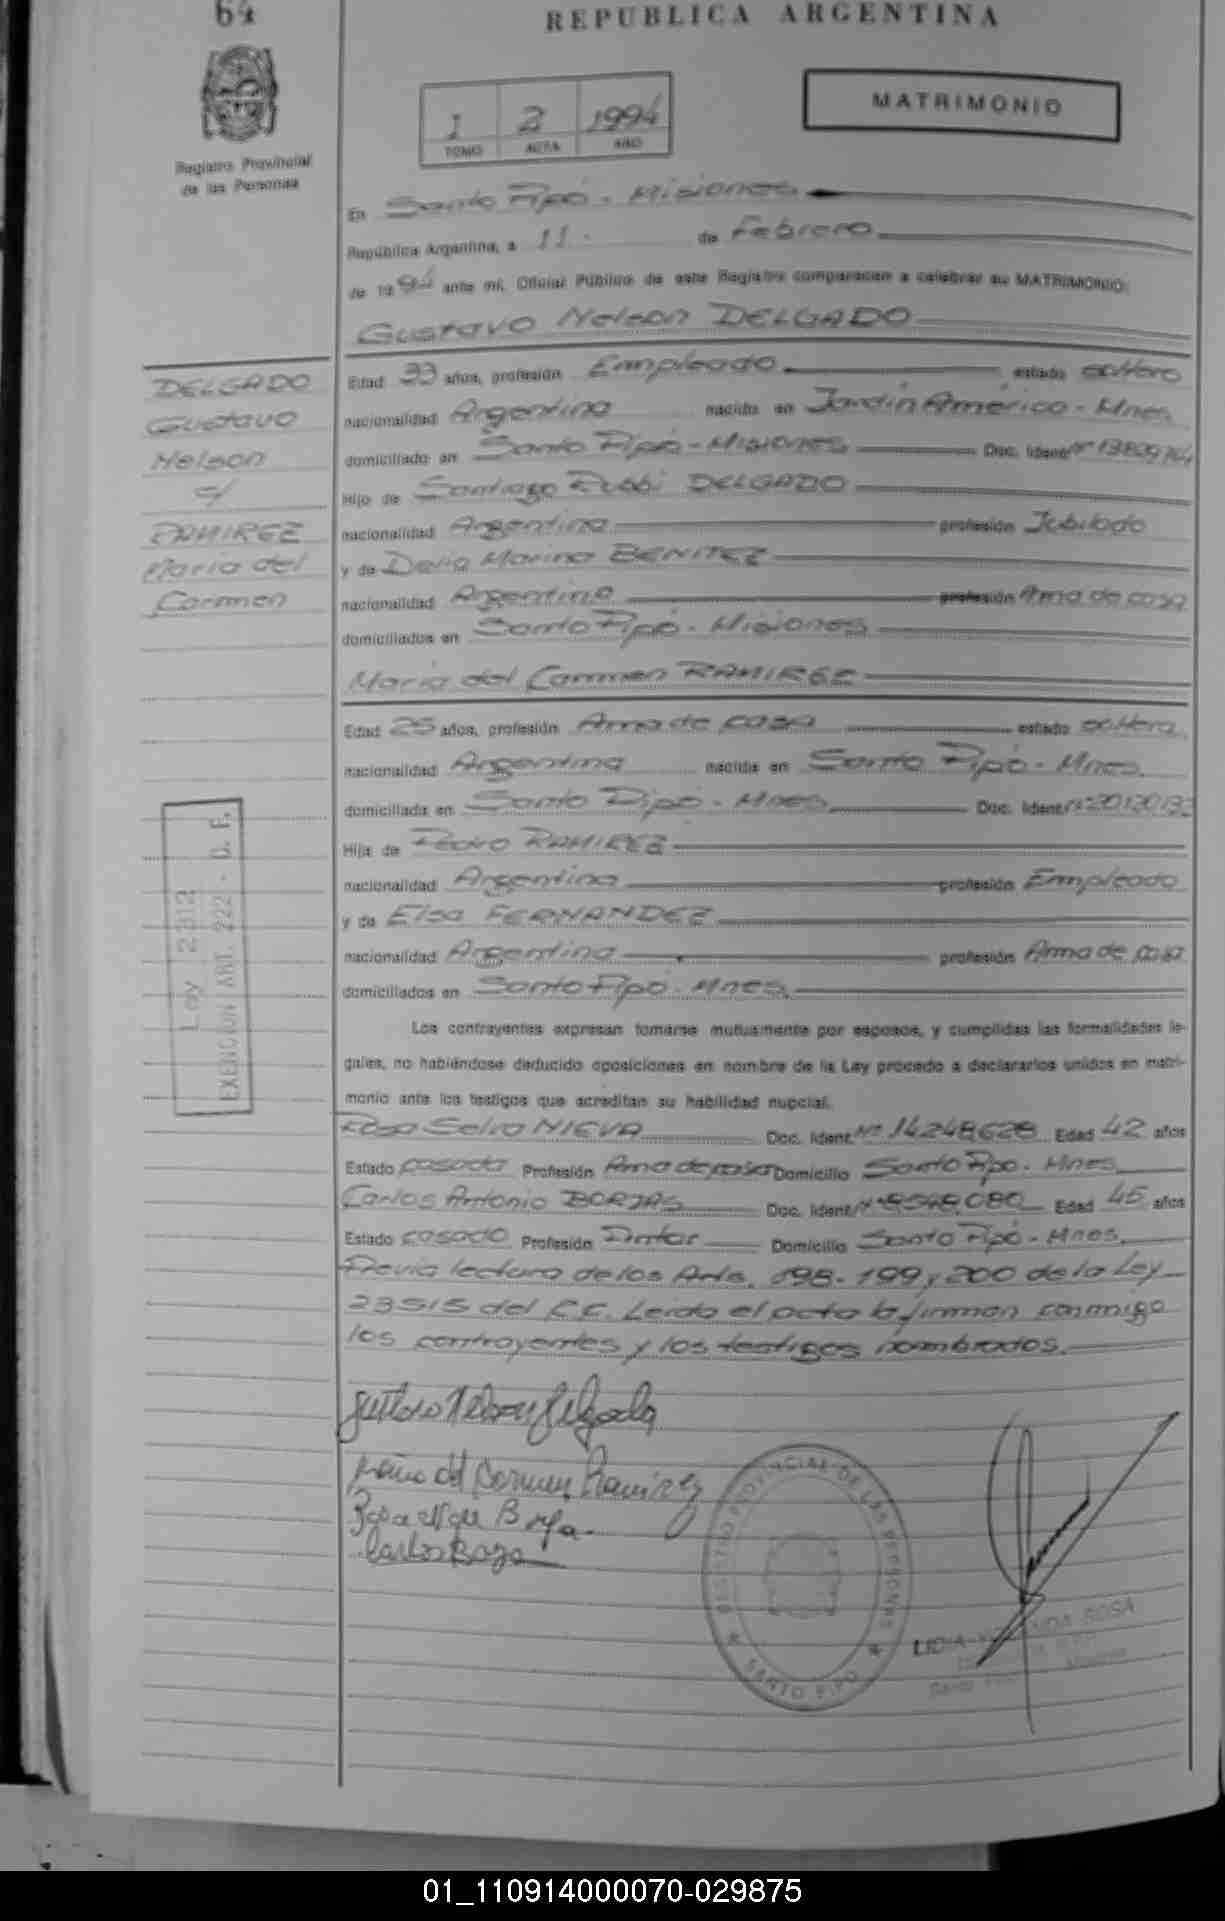 64
REPUBLICA ARGENTINA
Registro Provincial
de las Personas
1 2 1994
TOMO ACTA AÑO
MATRIMONIO
En Santo Pipó - Misiones
República Argentina, a 11 de Febrero
de 1994 ante mí, Oficial Público de este Registro comparecen a celebrar su MATRIMONIO:
Gustavo Nelson DELGADO
DELGADO
Gustavo
Nelson
c/
RAMIREZ
Maria del
Carmen
Edad 33 años, profesión Empleado estado soltero
nacionalidad Argentina nacido en Jardín América - Mnes.
domiciliado en Santo Pipó - Misiones Doc. Ident. Nº
Hijo de Santiago DELGADO
nacionalidad Argentina profesión Jubilado
y de Delia Marina BENITEZ
nacionalidad Argentina profesión Ama de casa
domiciliados en Santo Pipó - Misiones
Maria del Carmen RAMIREZ
Edad 25 años, profesión Ama de casa estado soltera
nacionalidad Argentina nacida en Santo Pipó - Mnes.
domiciliada en Santo Pipó - Mnes. Doc. Ident. Nº 20120132
Hija de Pedro RAMIREZ
nacionalidad Argentina profesión Empleado
y de Elsa FERNANDEZ
nacionalidad Argentina profesión Ama de casa
domiciliados en Santo Pipó - Mnes.
Ley 2312
EXENCION ART. 222 - D. F.
Los contrayentes expresan tomarse mutuamente por esposos, y cumplidas las formalidades le-
gales, no habiéndose deducido oposiciones en nombre de la Ley procedo a declararlos unidos en matri-
monio ante los testigos que acreditan su habilidad nupcial.
Rosa Selva NIEVA Doc. Ident. Nº 14248628 Edad 42 años
Estado casada Profesión Ama de casa Domicilio Santo Pipó - Mnes.
Carlos Antonio BORJAS Doc. Ident. Nº 8548.080 Edad 45 años
Estado casado Profesión Pintor Domicilio Santo Pipó - Mnes.
Previa lectura de los Arts. 198 - 199 y 200 de la Ley
23515 del C.C. Leida el acta la firman conmigo
los contrayentes y los testigos nombrados.
Gustavo Nelson Delgado
Maria del Carmen Ramirez
REGISTRO PROVINCIAL DE LAS PERSONAS
SANTO PIPO
LIDIA ROSA
01_110914000070-029875